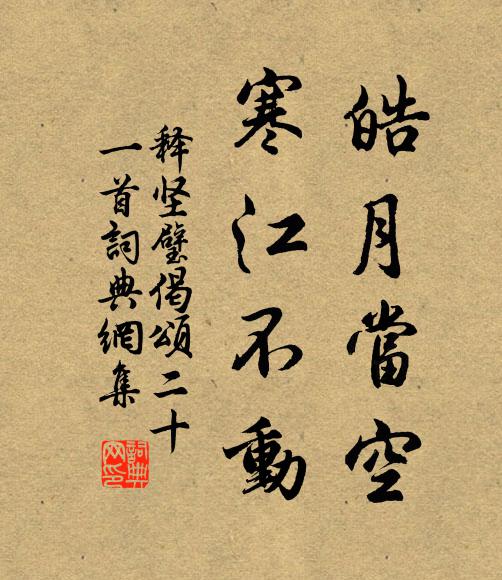 皓月當空
寒江不動
释坚璧偈頌二十
一首詞典網集
詞典
网印